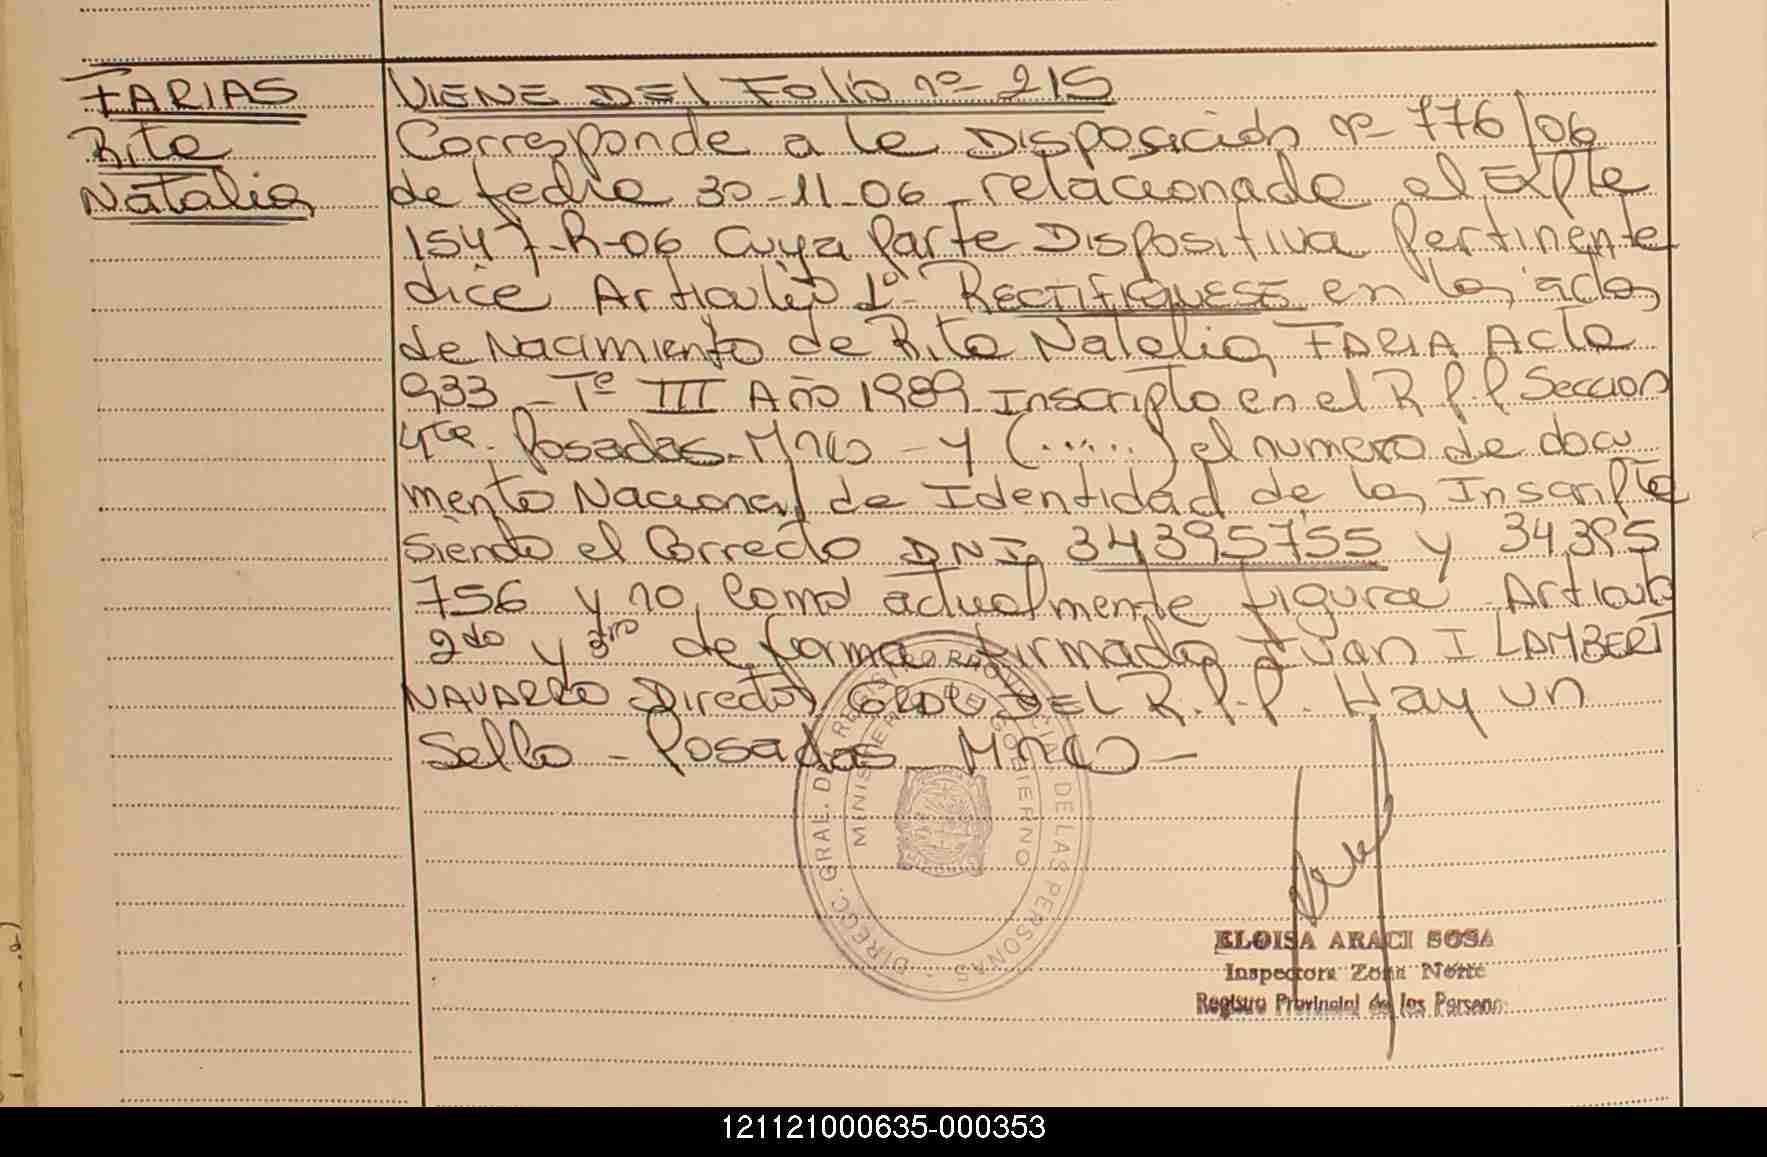 FARIAS
Rita
Natalia
VIENE DEL Folio nº 215
Corresponde a la Disposición nº 776/06
de fecha 30-11-06 relacionada al EXPte
1547-R-06 Cuya Parte Dispositiva Pertinente
dice Articulo 1º RECTIFIQUESE en las actas
de Nacimiento de Rita Natalia FARIA Acta
933 - Tº III Año 1989 Inscripto en el R.P.P Seccion
4ta. Posadas - Mnes - y (......) el numero de docu
mento Nacional de Identidad de las Inscripta
Siendo el Correcto DNI 34395755 y 34.395
756 y no, Como actualmente figura - Articulo
2do y 3ro de forma firmado Juan I LAMBERT
NAVARRO Director GRAL DEL R.P.P. Hay un
Sello - Posadas Mnes -
DIRECC. GRAL. DE REGISTRO PROVINCIAL DE LAS PERSONAS
MINISTERIO DE GOBIERNO
ELOISA ARACI SOSA
Inspectora Zona Norte
Registro Provincial de las Persona
121121000635-000353